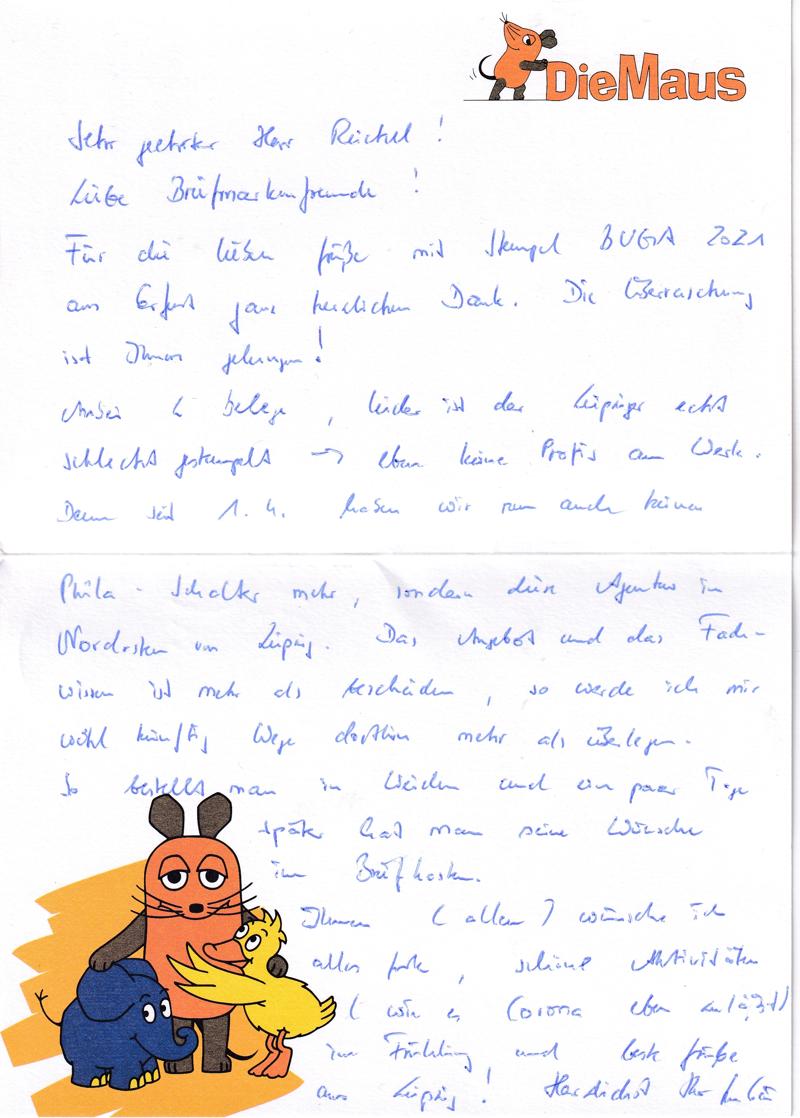 DieMaus
Sehr geehrter Herr Reichel!
Liebe Briefmarkenfreunde!
Für die lieben Grüße mit Stempel BUGA 2021
aus Erfurt ganz herzlichen Dank. Die Überraschung
ist Ihnen gelungen!
Anbei 2 Belege, leider ist der Leipziger echt
schlecht gestempelt → eben keine Profis am Werk.
Denn seit 1.4. haben wir nun auch keinen
Phila-Schalter mehr, sondern diese Agentur im
Nordosten von Leipzig. Das Angebot und das Fach-
wissen ist mehr als bescheiden, so werde ich mir
wohl künftig Wege dorthin mehr als überlegen.
So bestellt man in Weiden und ein paar Tage
später hat man seine Wünsche
im Briefkasten.
Ihnen (allen) wünsche ich
alles Gute, schöne Aktivitäten
(wie es Corona eben zuläßt)
im Frühling und beste Grüße
aus Leipzig! Herzlichst Ihr